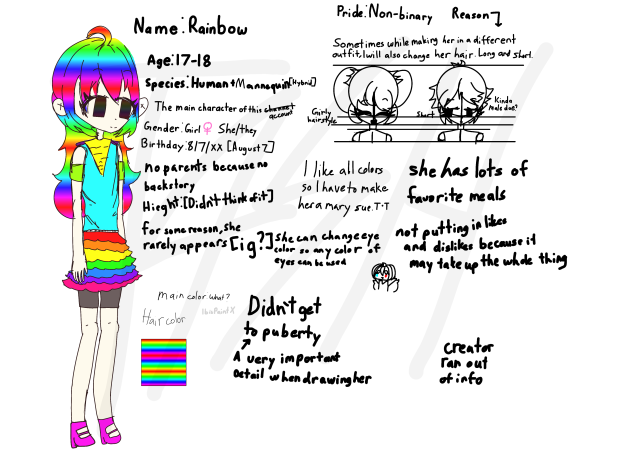 Name:Rainbow
Age:17-18
Species:Human+Mannaquin[Hybrid]
The main character of this channel
account
Gender:Girl♀ She/they
Birthday:8/7/xx [August 7]
no parents because no
backstory
Hieght:[Didn't think of it]
for some reason, she
rarely appears [ig?]
Pride:Non-binary Reason
Sometimes while making her in a different
outfit, I will also change her hair. Long and short.
Girly
hairstyle
Short
Kinda
male due?
I like all colors
so I have to make
her a mary sue. T-T
she has lots of
favorite meals
She can change eye
color so any color of
eyes can be used
not putting in likes
and dislikes because it
may take up the whole thing
main color what?
Hair color
IbisPaint X
Didn't get
to puberty
A very important
detail when drawing her
creator
ran out
of info